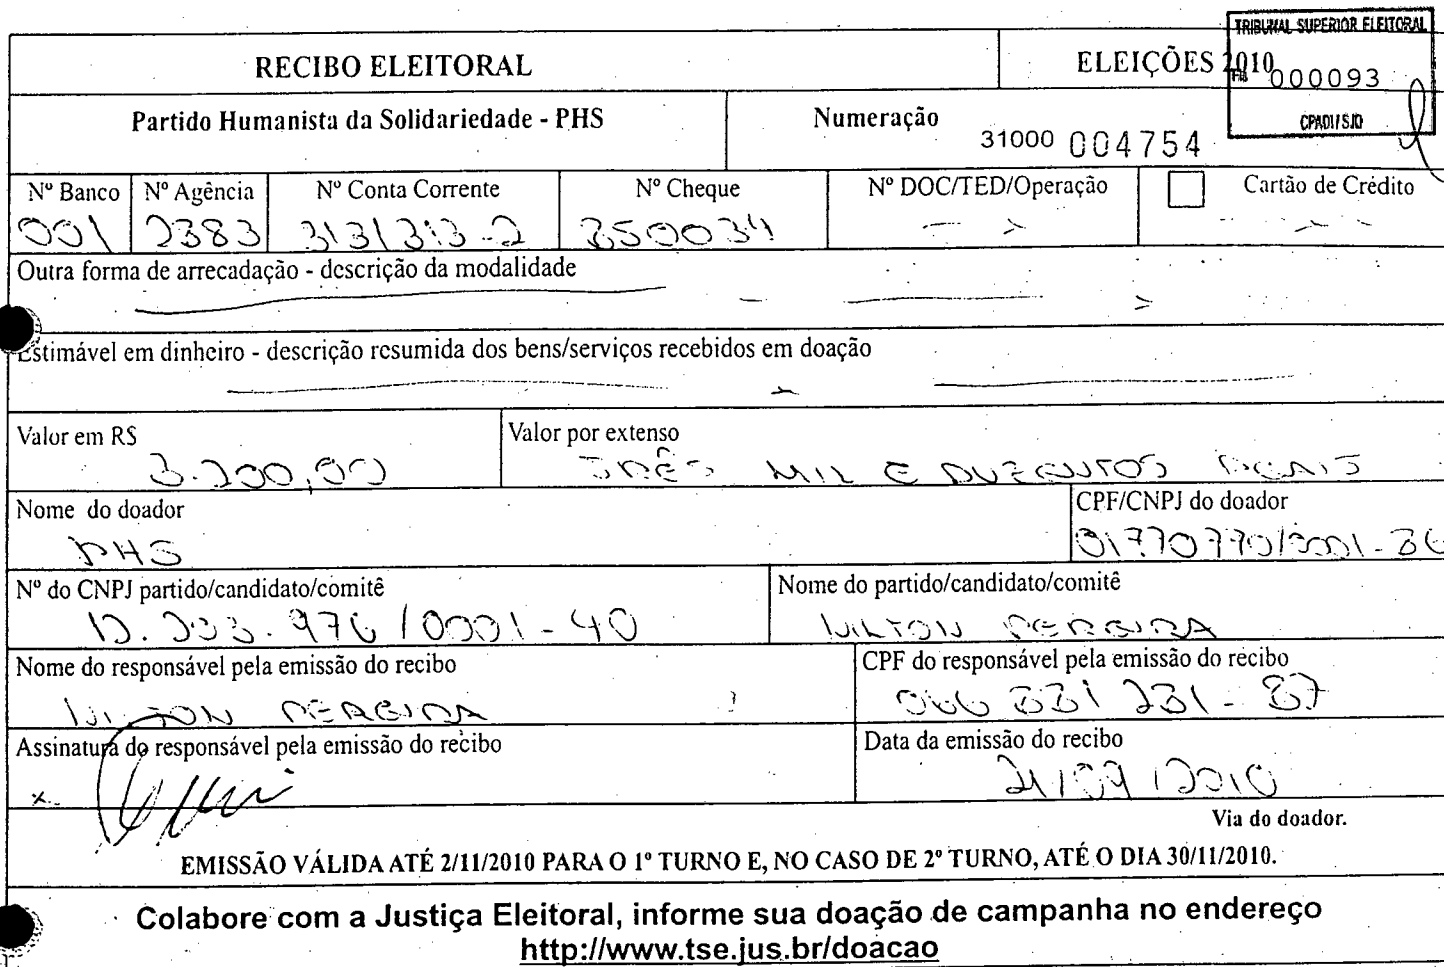 TRIBUNAL SUPERIOR ELEITORAL
RECIBO ELEITORAL
ELEIÇÕES 2010
Fls 000093
CPADI/SJD
Partido Humanista da Solidariedade - PHS
Numeração
31000 004754
Nº Banco Nº Agência Nº Conta Corrente Nº Cheque Nº DOC/TED/Operação Cartão de Crédito
001 2383 3131313-2 850034
Outra forma de arrecadação - descrição da modalidade
Estimável em dinheiro - descrição resumida dos bens/serviços recebidos em doação
Valor em R$ Valor por extenso
3.200,00 TRÊS MIL E DUZENTOS REAIS
Nome do doador CPF/CNPJ do doador
PHS 01770770/0001-36
Nº do CNPJ partido/candidato/comitê Nome do partido/candidato/comitê
976/0001-40 NILTON PEREIRA
Nome do responsável pela emissão do recibo CPF do responsável pela emissão do recibo
NILTON PEREIRA 066 331 231-87
Assinatura do responsável pela emissão do recibo Data da emissão do recibo
x 21/09/2010
Via do doador.
EMISSÃO VÁLIDA ATÉ 2/11/2010 PARA O 1º TURNO E, NO CASO DE 2º TURNO, ATÉ O DIA 30/11/2010.
Colabore com a Justiça Eleitoral, informe sua doação de campanha no endereço
http://www.tse.jus.br/doacao